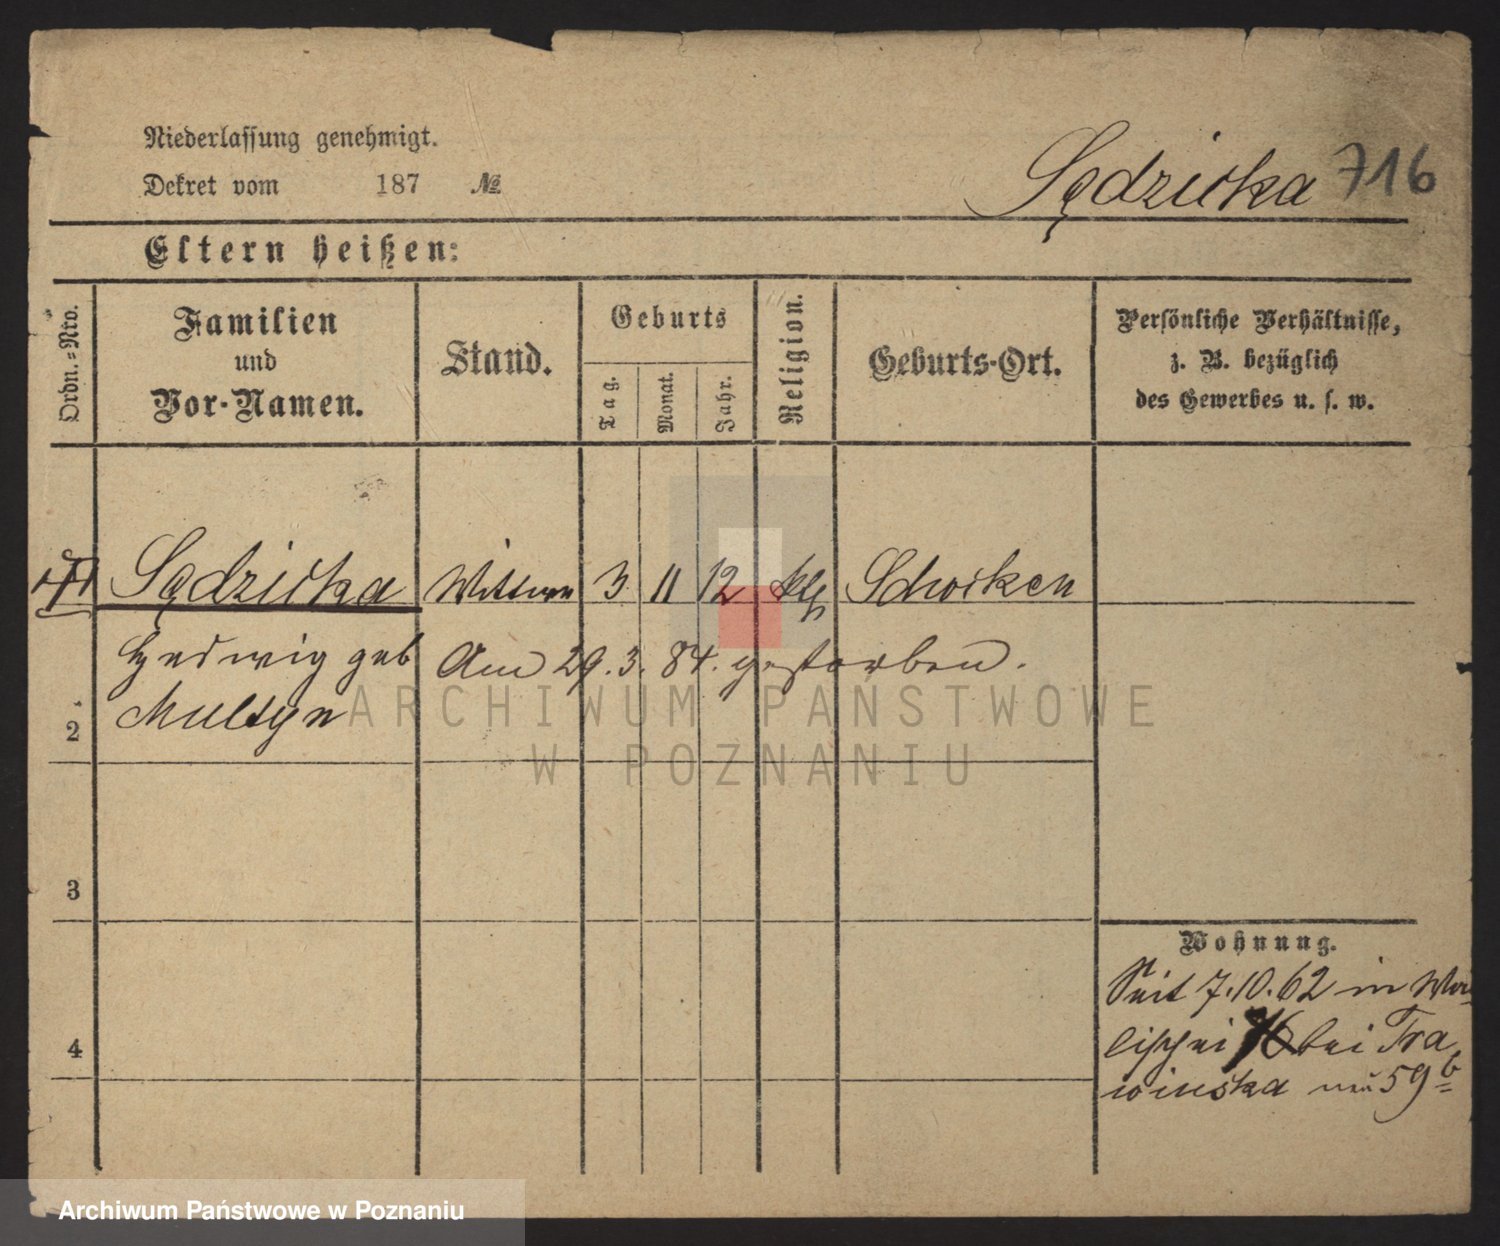 Niederlassung genehmigt.
Dekret vom 187 №
Sędzicka 716
Eltern heißen:
Ordn.=Nro.
Familien
und
Vor-Namen.
Stand.
Geburts
Tag.
Monat.
Jahr.
Religion.
Geburts-Ort.
Persönliche Verhältnisse,
z. B. bezüglich
des Gewerbes u. s. w.
Sędzicka Wittwe 3 11 12 kth Schocken
Hedwig geb Am 29. 3. 84. gestorben.
Multyn
2
3
4
Wohnung.
Seit 7.10.62 in Wa
lischei 76 bei Tra
winska neu 59b
ARCHIWUM PAŃSTWOWE
W POZNANIU
Archiwum Państwowe w Poznaniu